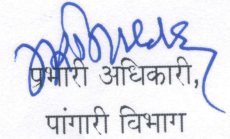 प्रभारी अधिकारी,
पांगारी विभाग